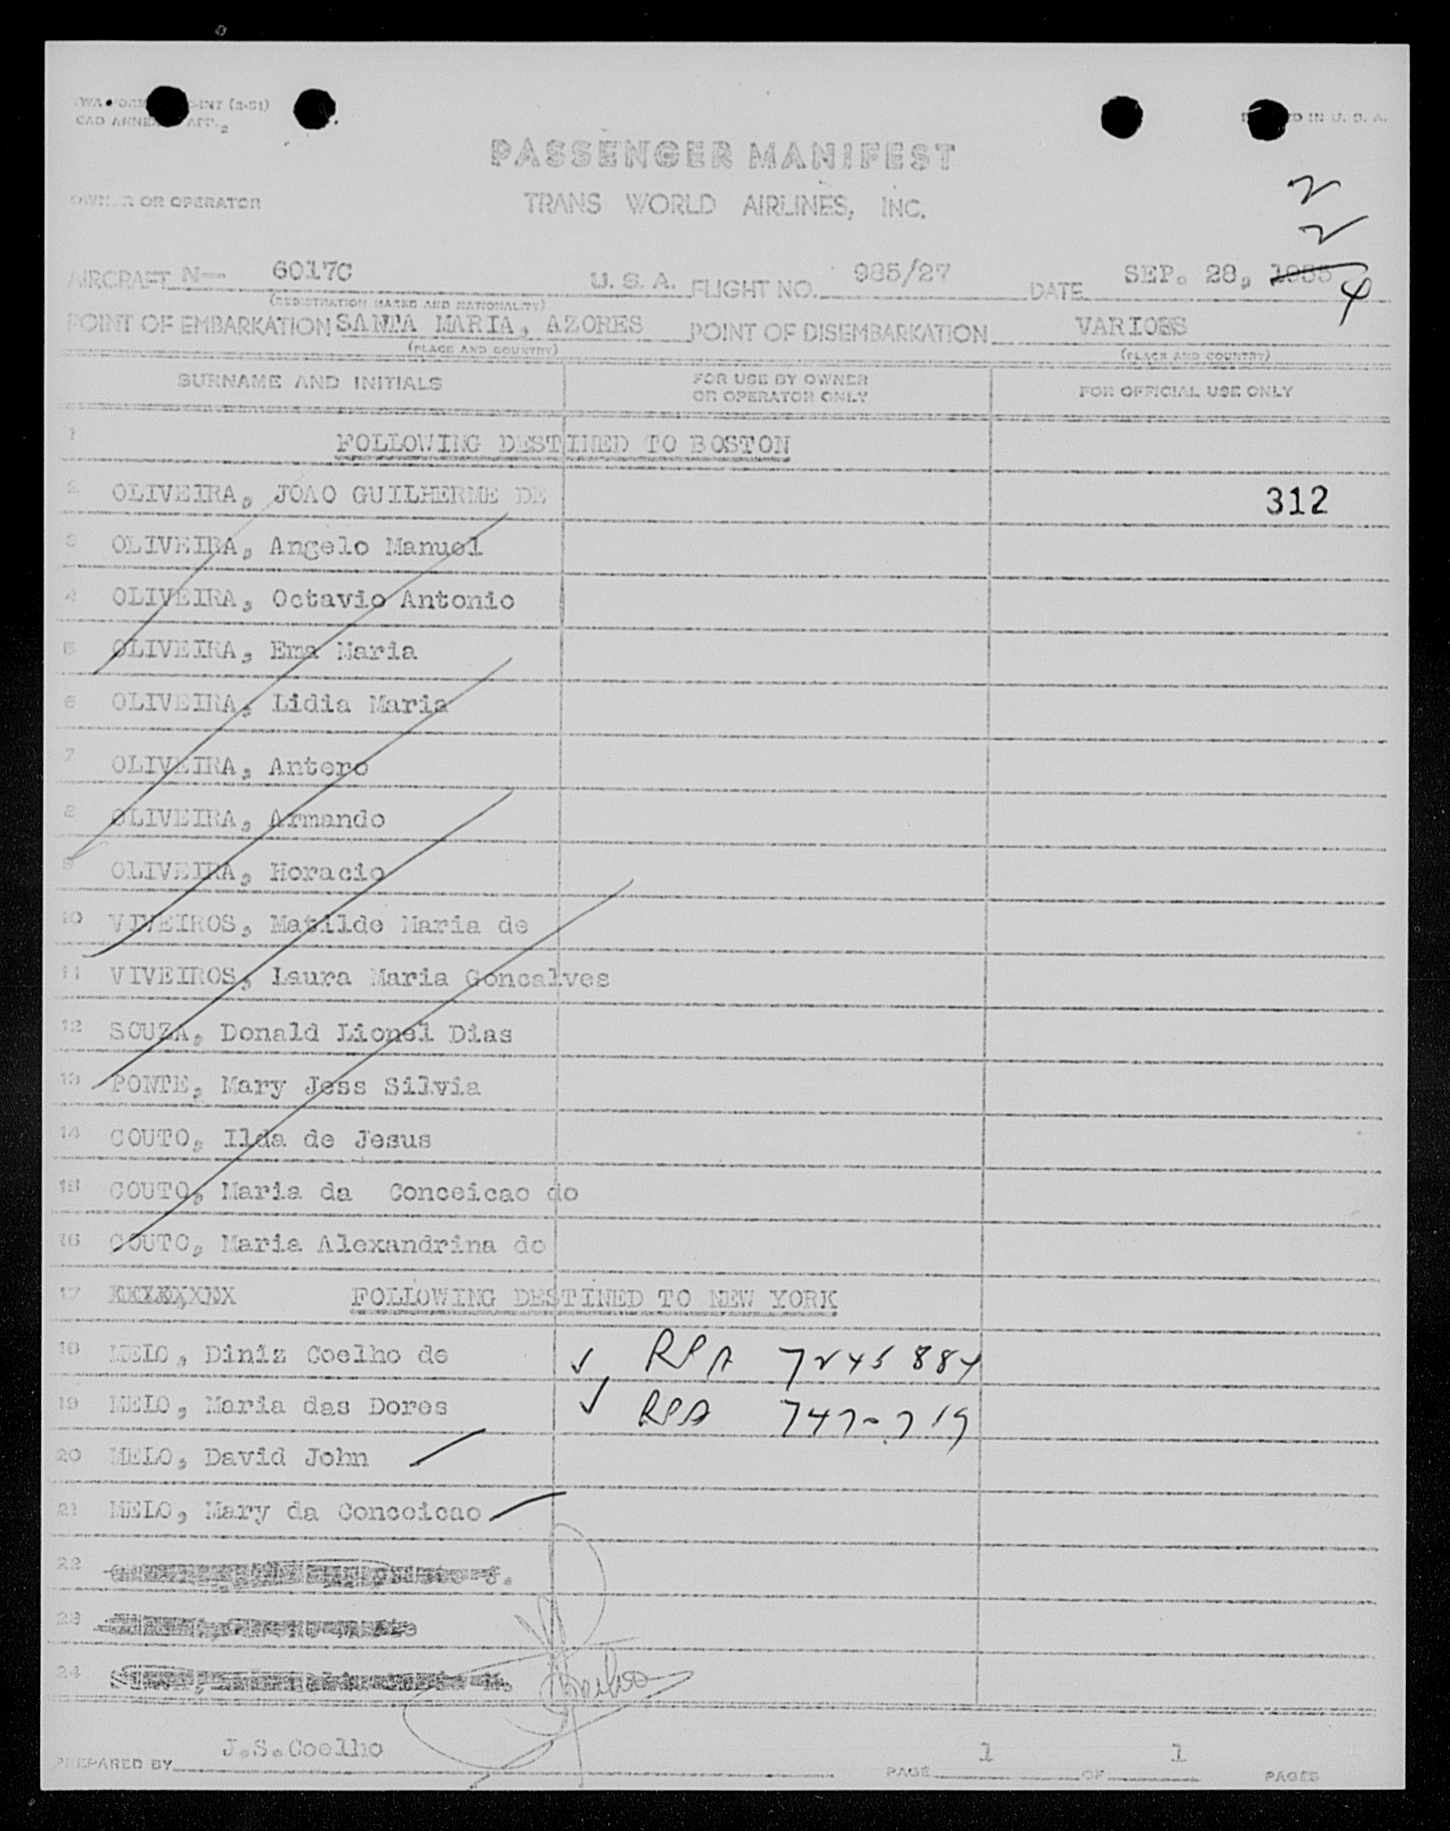 (2-51)
PASSENGER MANIFEST
OWNER OR OPERATOR
TRANS WORLD AIRLINES, INC.
2
2
AIRCRAFT N— 6017C U. S. A. FLIGHT NO. 985/27 DATE SEP. 28, 1955 4
(REGISTRATION MARKS AND NATIONALITY)
POINT OF EMBARKATION SANTA MARIA, AZORES POINT OF DISEMBARKATION VARIOSS
(PLACE AND COUNTRY) (PLACE AND COUNTRY)
SURNAME AND INITIALS FOR USE BY OWNER OR OPERATOR ONLY FOR OFFICIAL USE ONLY
1 FOLLOWING DESTINED TO BOSTON
2 OLIVEIRA, JOAO GUILHERME DE 312
3 OLIVEIRA, Angelo Manuel
4 OLIVEIRA, Octavio Antonio
5 OLIVEIRA, Ema Maria
6 OLIVEIRA, Lidia Maria
7 OLIVEIRA, Antero
8 OLIVEIRA, Armando
9 OLIVEIRA, Horacio
10 VIVEIROS, Matilde Maria de
11 VIVEIROS, Laura Maria Goncalves
12 SOUZA, Donald Lionel Dias
13 PONTE, Mary Jess Silvia
14 COUTO, Ilda de Jesus
15 COUTO, Maria da Conceicao do
16 COUTO, Maria Alexandrina do
17 FOLLOWING DESTINED TO NEW YORK
18 MELO, Diniz Coelho de ✓ RPA 7245 884
19 MELO, Maria das Dores ✓ RPA 747-719
20 MELO, David John
21 MELO, Mary da Conceicao
22
23
24
PREPARED BY J.S.Coelho PAGE 1 OF 1 PAGES